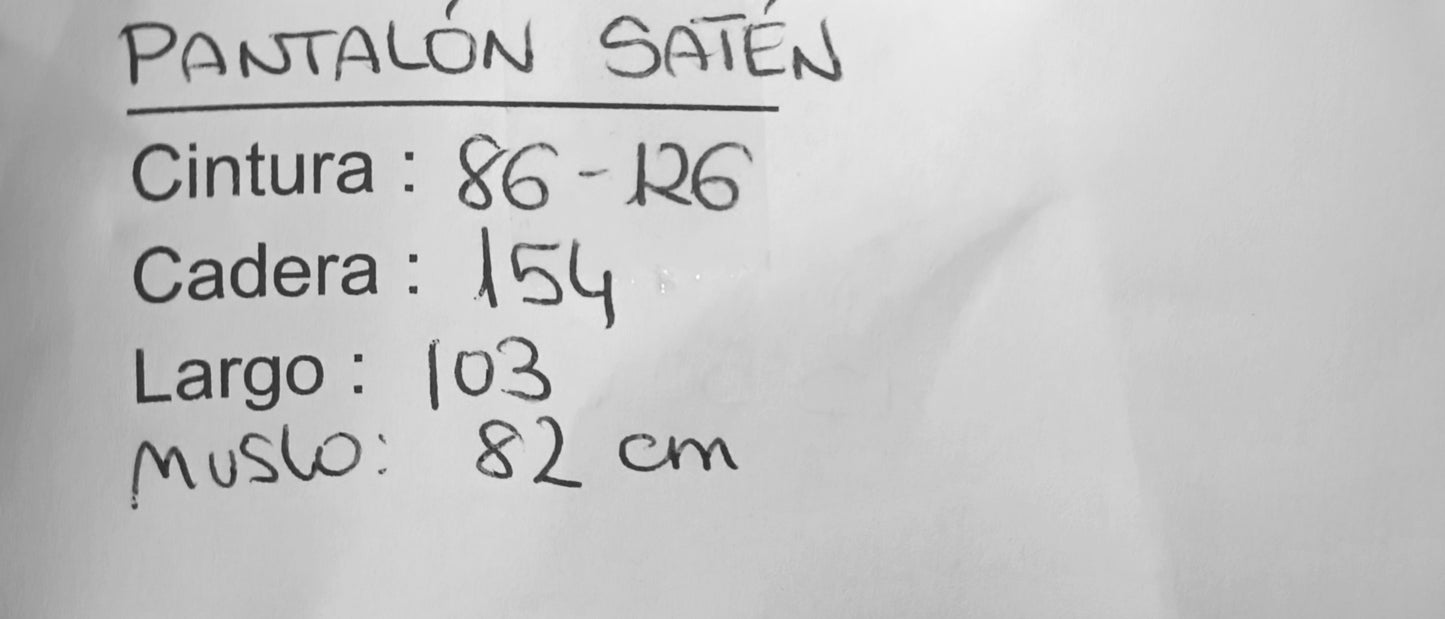 PANTALÓN SATÉN
Cintura : 86 - 126
Cadera : 154
Largo : 103
MUSLO: 82 cm